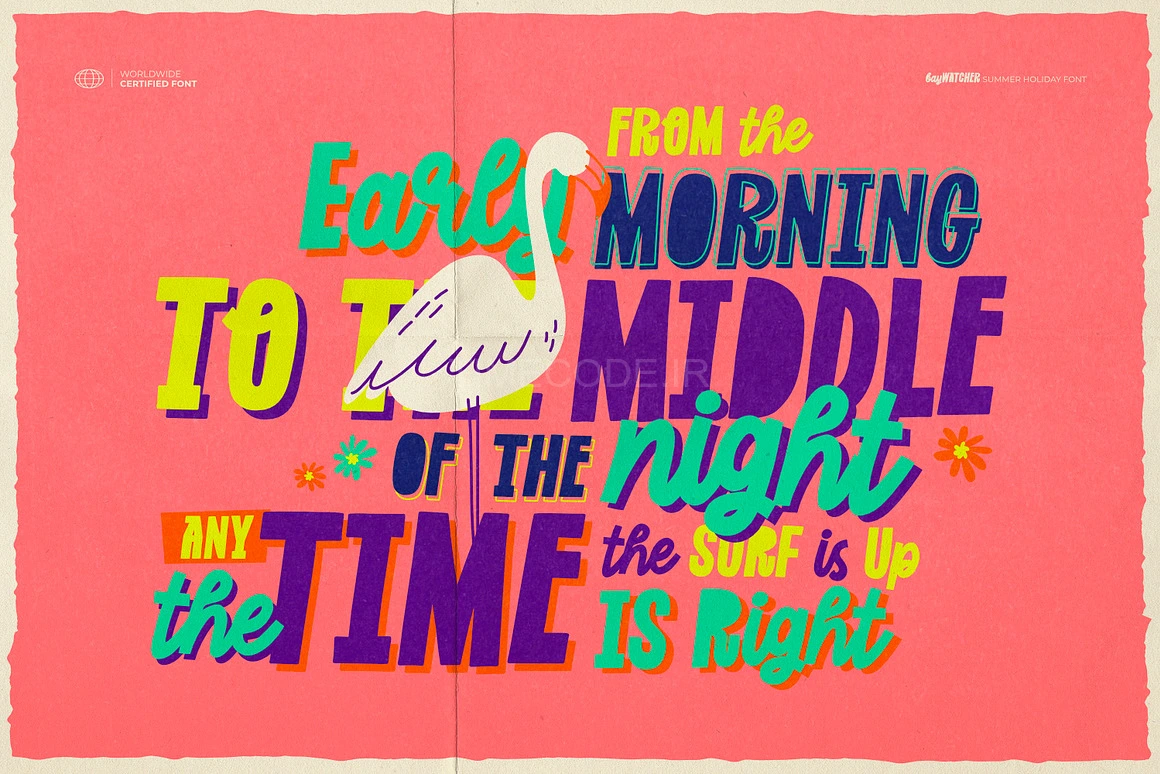 WORLDWIDE
CERTIFIED FONT
bayWATCHER SUMMER HOLIDAY FONT
Early FROM the
MORNING
TO THE MIDDLE
OF THE night
ANY
the TIME the SURF is Up
IS Right